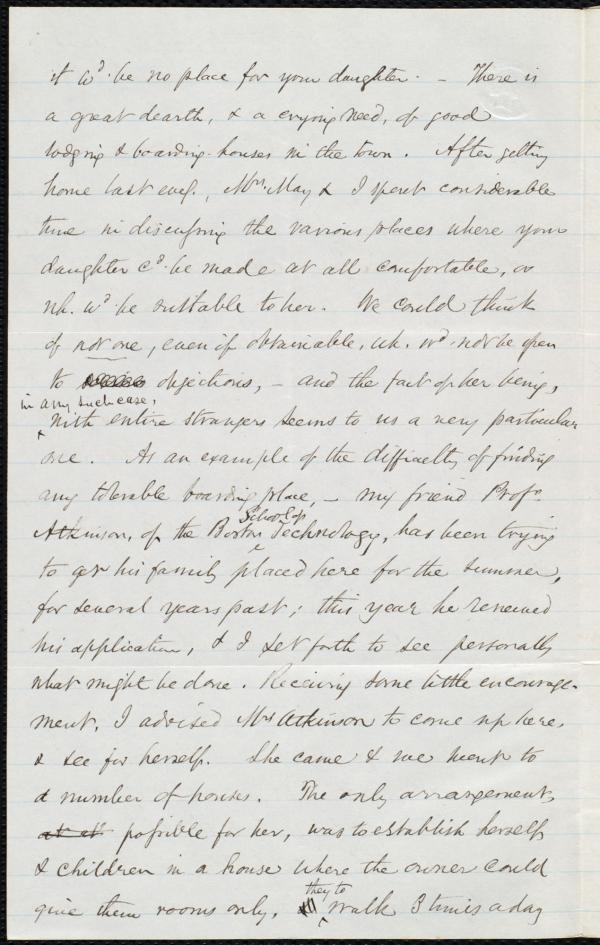 it wd. be no place for your daughter. - There is
a great dearth, & a crying need, of good
lodging & boarding-houses in the town. After getting
home last eveg., Mrs. May & I spent considerable
time in discussing the various places where your
daughter cd. be made at all comfortable, or
wh. wd. be suitable to her. We could think
of not one, even if obtainable, wh. wd. not be open
to objections, - and the fact of her being,
in any such case,
with entire strangers seems to us a very particular
one. As an example of the difficulty of finding
any tolerable boarding place, - my friend Profr.
School of
Atkinson, of the Boston Technology, has been trying
to get his family placed here for the summer,
for several years past; this year he renewed
his application, & I set forth to see personally
what might be done. Receiving some little encourage-
ment, I advised Mrs Atkinson to come up here,
& see for herself. She came & we went to
a number of houses. The only arrangement,
at all possible for her, was to establish herself
& children in a house where the owner could
they to
give them rooms only, walk 3 times a day